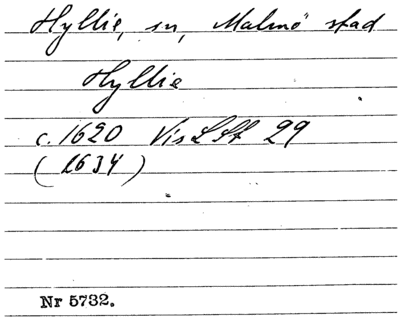 Hyllie, sn, Malmö stad
Hyllie
c. 1620 Vis LSt 29
(1634)
Nr 5732.